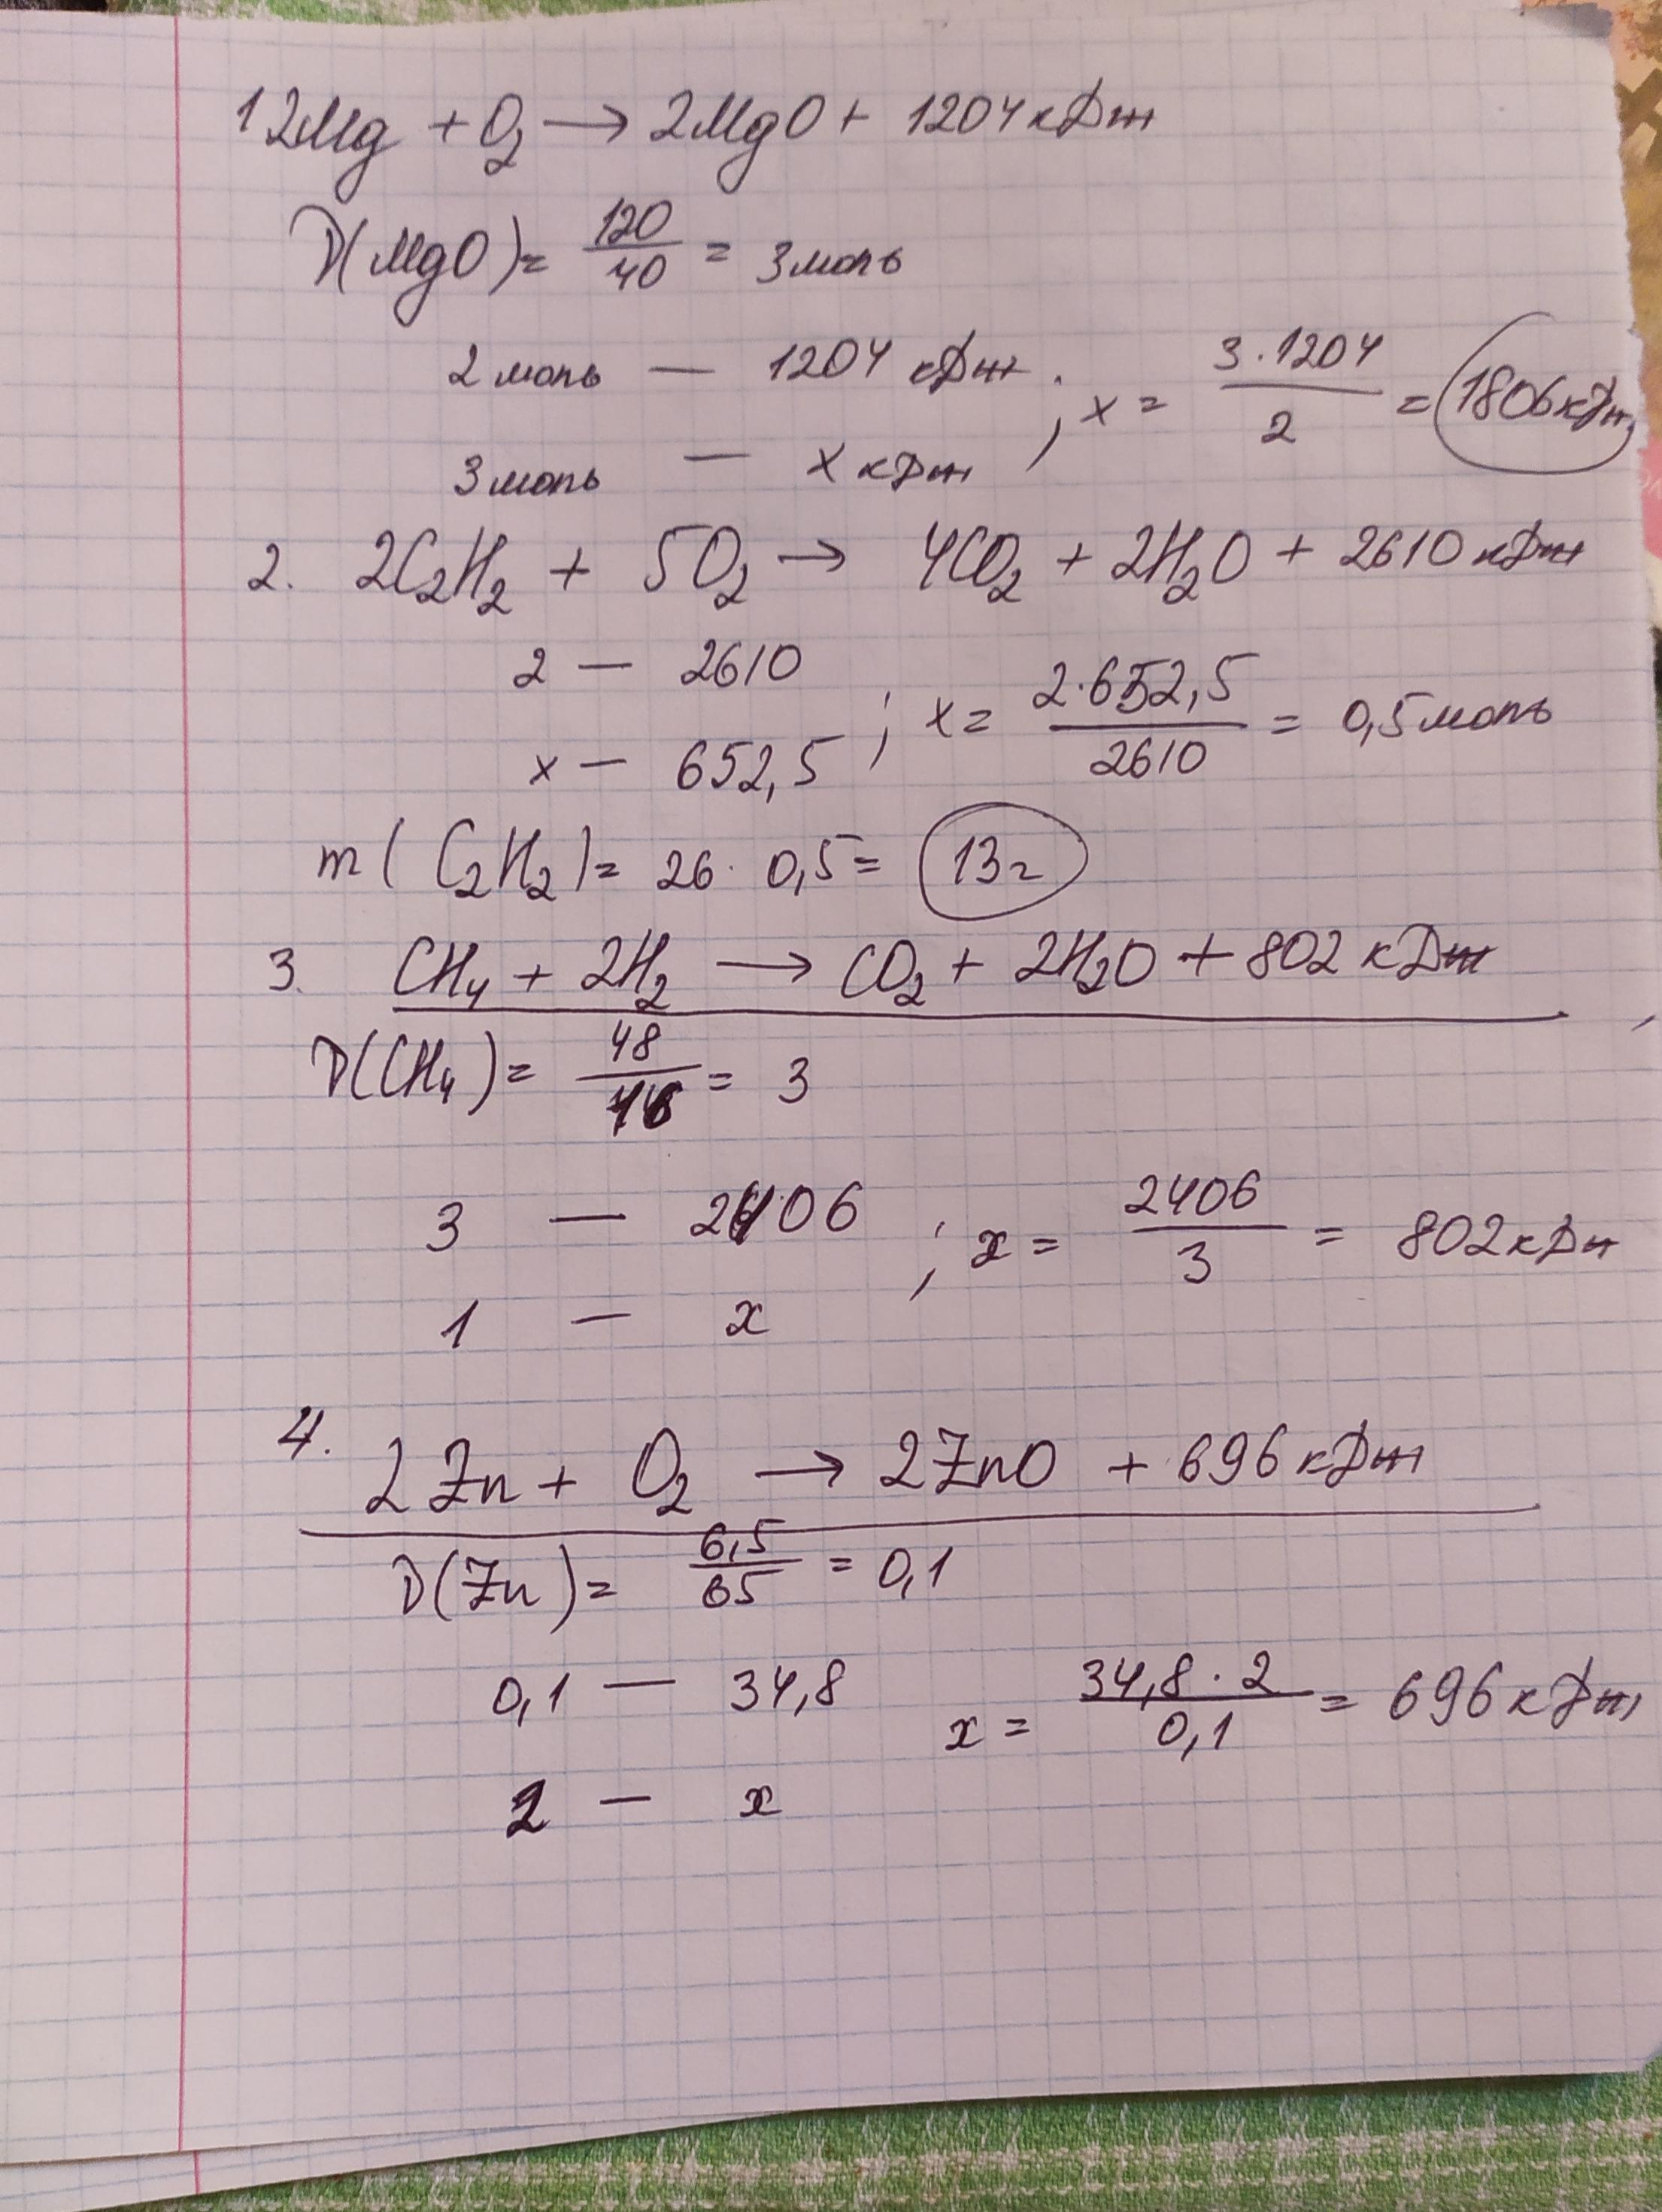 1 2Mg + O₂ → 2MgO + 1204 кДж
ν(MgO) = 120/40 = 3 моль
2 моль — 1204 кДж ; x = 3·1204/2 = 1806 кДж
3 моль — x кДж
2. 2C₂H₂ + 5O₂ → 4CO₂ + 2H₂O + 2610 кДж
2 — 2610 ; x = 2·652,5/2610 = 0,5 моль
x — 652,5
m(C₂H₂) = 26·0,5 = 13г
3. CH₄ + 2H₂ → CO₂ + 2H₂O + 802 кДж
ν(CH₄) = 48/16 = 3
3 — 2406 ; x = 2406/3 = 802 кДж
1 — x
4. 2Zn + O₂ → 2ZnO + 696 кДж
ν(Zn) = 6,5/65 = 0,1
0,1 — 34,8 x = 34,8·2/0,1 = 696 кДж
2 — x